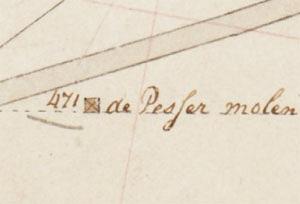 471 de Pesser molen